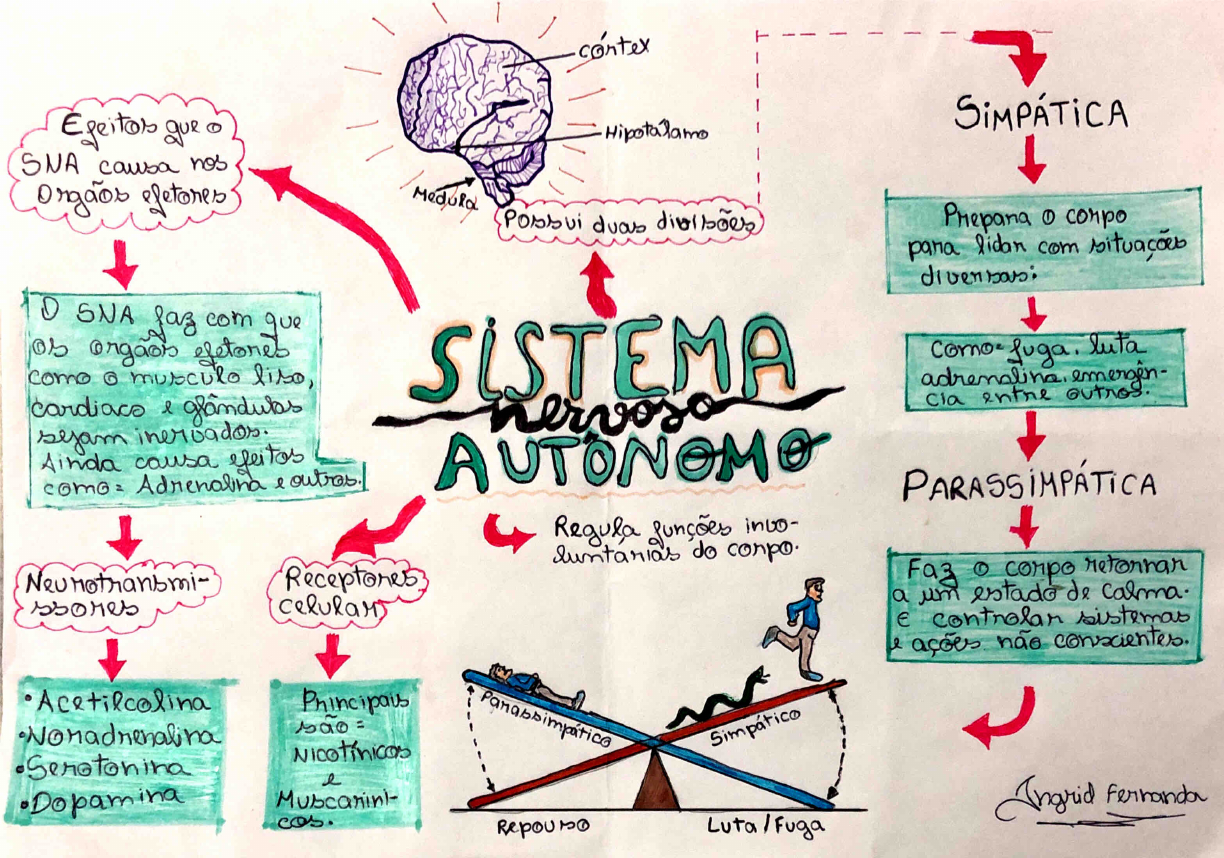 córtex
Hipotálamo
Medula
Possui duas divisões
Efeitos que o
SNA causa nos
Orgãos efetores
O SNA faz com que
os orgãos efetores
como o musculo liso,
cardiaco e glândulas
sejam inervados.
Ainda causa efeitos
como= Adrenalina e outros.
Neurotransmi-
ssores
•Acetilcolina
•Noradrenalina
•Serotonina
•Dopamina
Receptores
celular
Principais
são=
Nicotínicos
e
Muscaríni-
cos.
SISTEMA
nervoso
AUTÔNOMO
Regula funções invo-
luntárias do corpo.
Parassimpático
Simpático
Repouso
Luta/Fuga
SIMPÁTICA
Prepara o corpo
para lidar com situações
diversas:
Como= fuga, luta
adrenalina, emergên-
cia entre outros.
PARASSIMPÁTICA
Faz o corpo retornar
a um estado de calma.
E controlar sistemas
e ações não conscientes.
Ingrid Fernanda